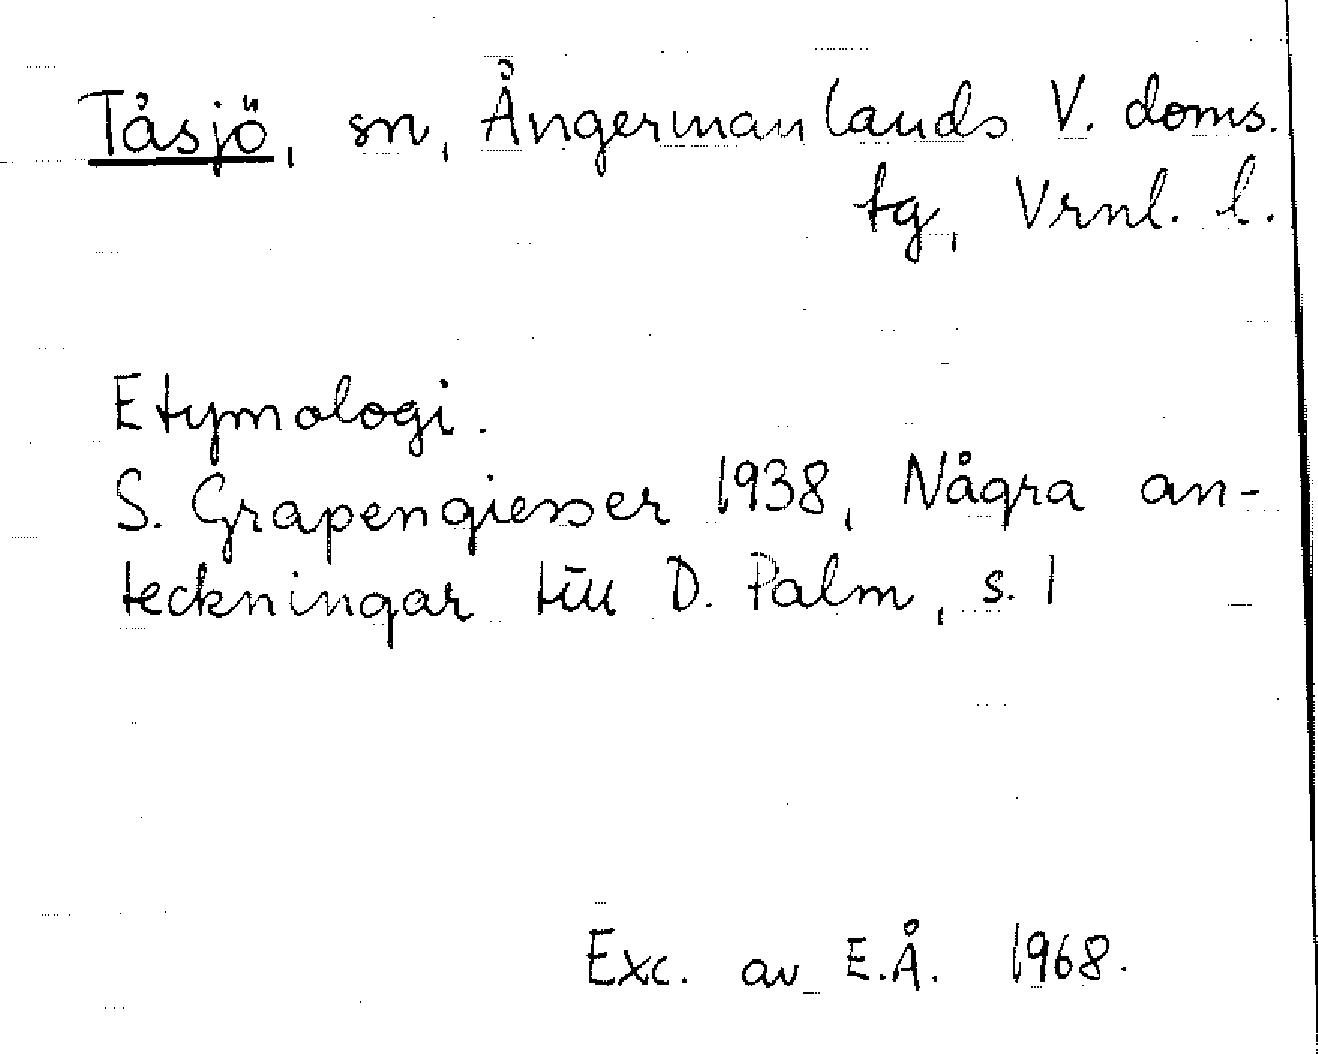 Tåsjö, sn, Ångermanlands V. doms.
tg, Vrnl. l.
Etymologi.
S. Grapengiesser 1938, Några an-
teckningar till D. Palm, s. 1
Exc. av E.Å. 1968.